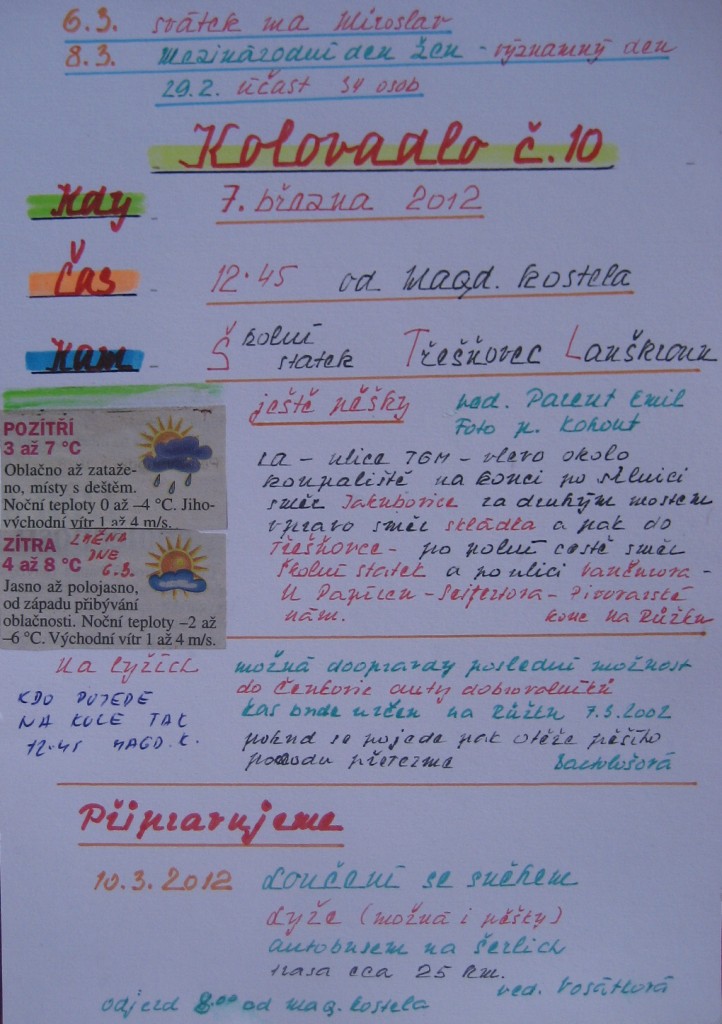 6.3. svátek má Miroslav
8.3. Mezinárodní den Žen - významný den
29.2. účast 34 osob
Kolovadlo č.10
Kdy 7. března 2012
Čas 12.45 od Magd. kostela
Kam Školní statek Třešňovec Lanškroun
ještě pěšky ved. Parent Emil
Foto p. Kohout
POZÍTŘÍ
3 až 7 °C
Oblačno až zataže-
no, místy s deštěm.
Noční teploty 0 až –4 °C. Jiho-
východní vítr 1 až 4 m/s.
ZÍTRA ZMĚNA
DNE
4 až 8 °C 6.3.
Jasno až polojasno,
od západu přibývání
oblačnosti. Noční teploty –2 až
–6 °C. Východní vítr 1 až 4 m/s.
LA - ulice TGM - vlevo okolo
koupaliště na konci po silnici
směr Jakubovice za druhým mostem
vpravo směr skládka a pak do
Třešňovce - po polní cestě směr
Školní statek a po ulici Vančurova -
U Papíren - Seifertova - Pivovarské
nám. konec na Růžku
Na lyžích možná doopravdy poslední možnost
do Čenkovic auty dobrovolníků
čas bude určen na Růžku 7.3.2002
pokud se pojede pak otěže pěšího
pochodu převezme Bartološová
KDO POJEDE
NA KOLE TAK
12.45 MAGD. K.
Připravujeme
10.3.2012 Loučení se sněhem
Lyže (možná i pěšky)
autobusem na Šerlich
trasa cca 25 km.
ved. Vosátková
odjezd 8.00 od mag. kostela